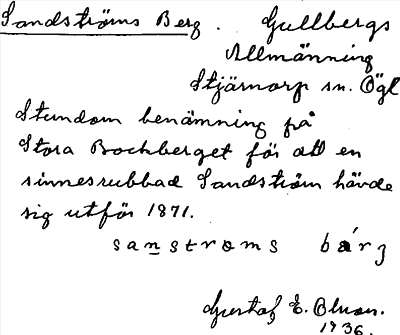 Sandströms Berg. Gullbergs
Allmänning
Stjärnorp sn. Ögl
Stundom benämning på
Stora Bockberget för att en
sinnesrubbad Sandström hävde
sig utför 1871.
sanstroms bárj
Gustaf E. Olsson.
1936.